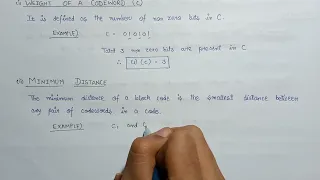 WEIGHT OF A CODEWORD (C)
It is defined as the number of non zero bits in C.
EXAMPLE)
Total 3 non zero bits are present in C
∴ W(C) = 3
MINIMUM DISTANCE
The minimum distance of a block code is the smallest distance between
any pair of codewords in a code.
EXAMPLE) C₁ and